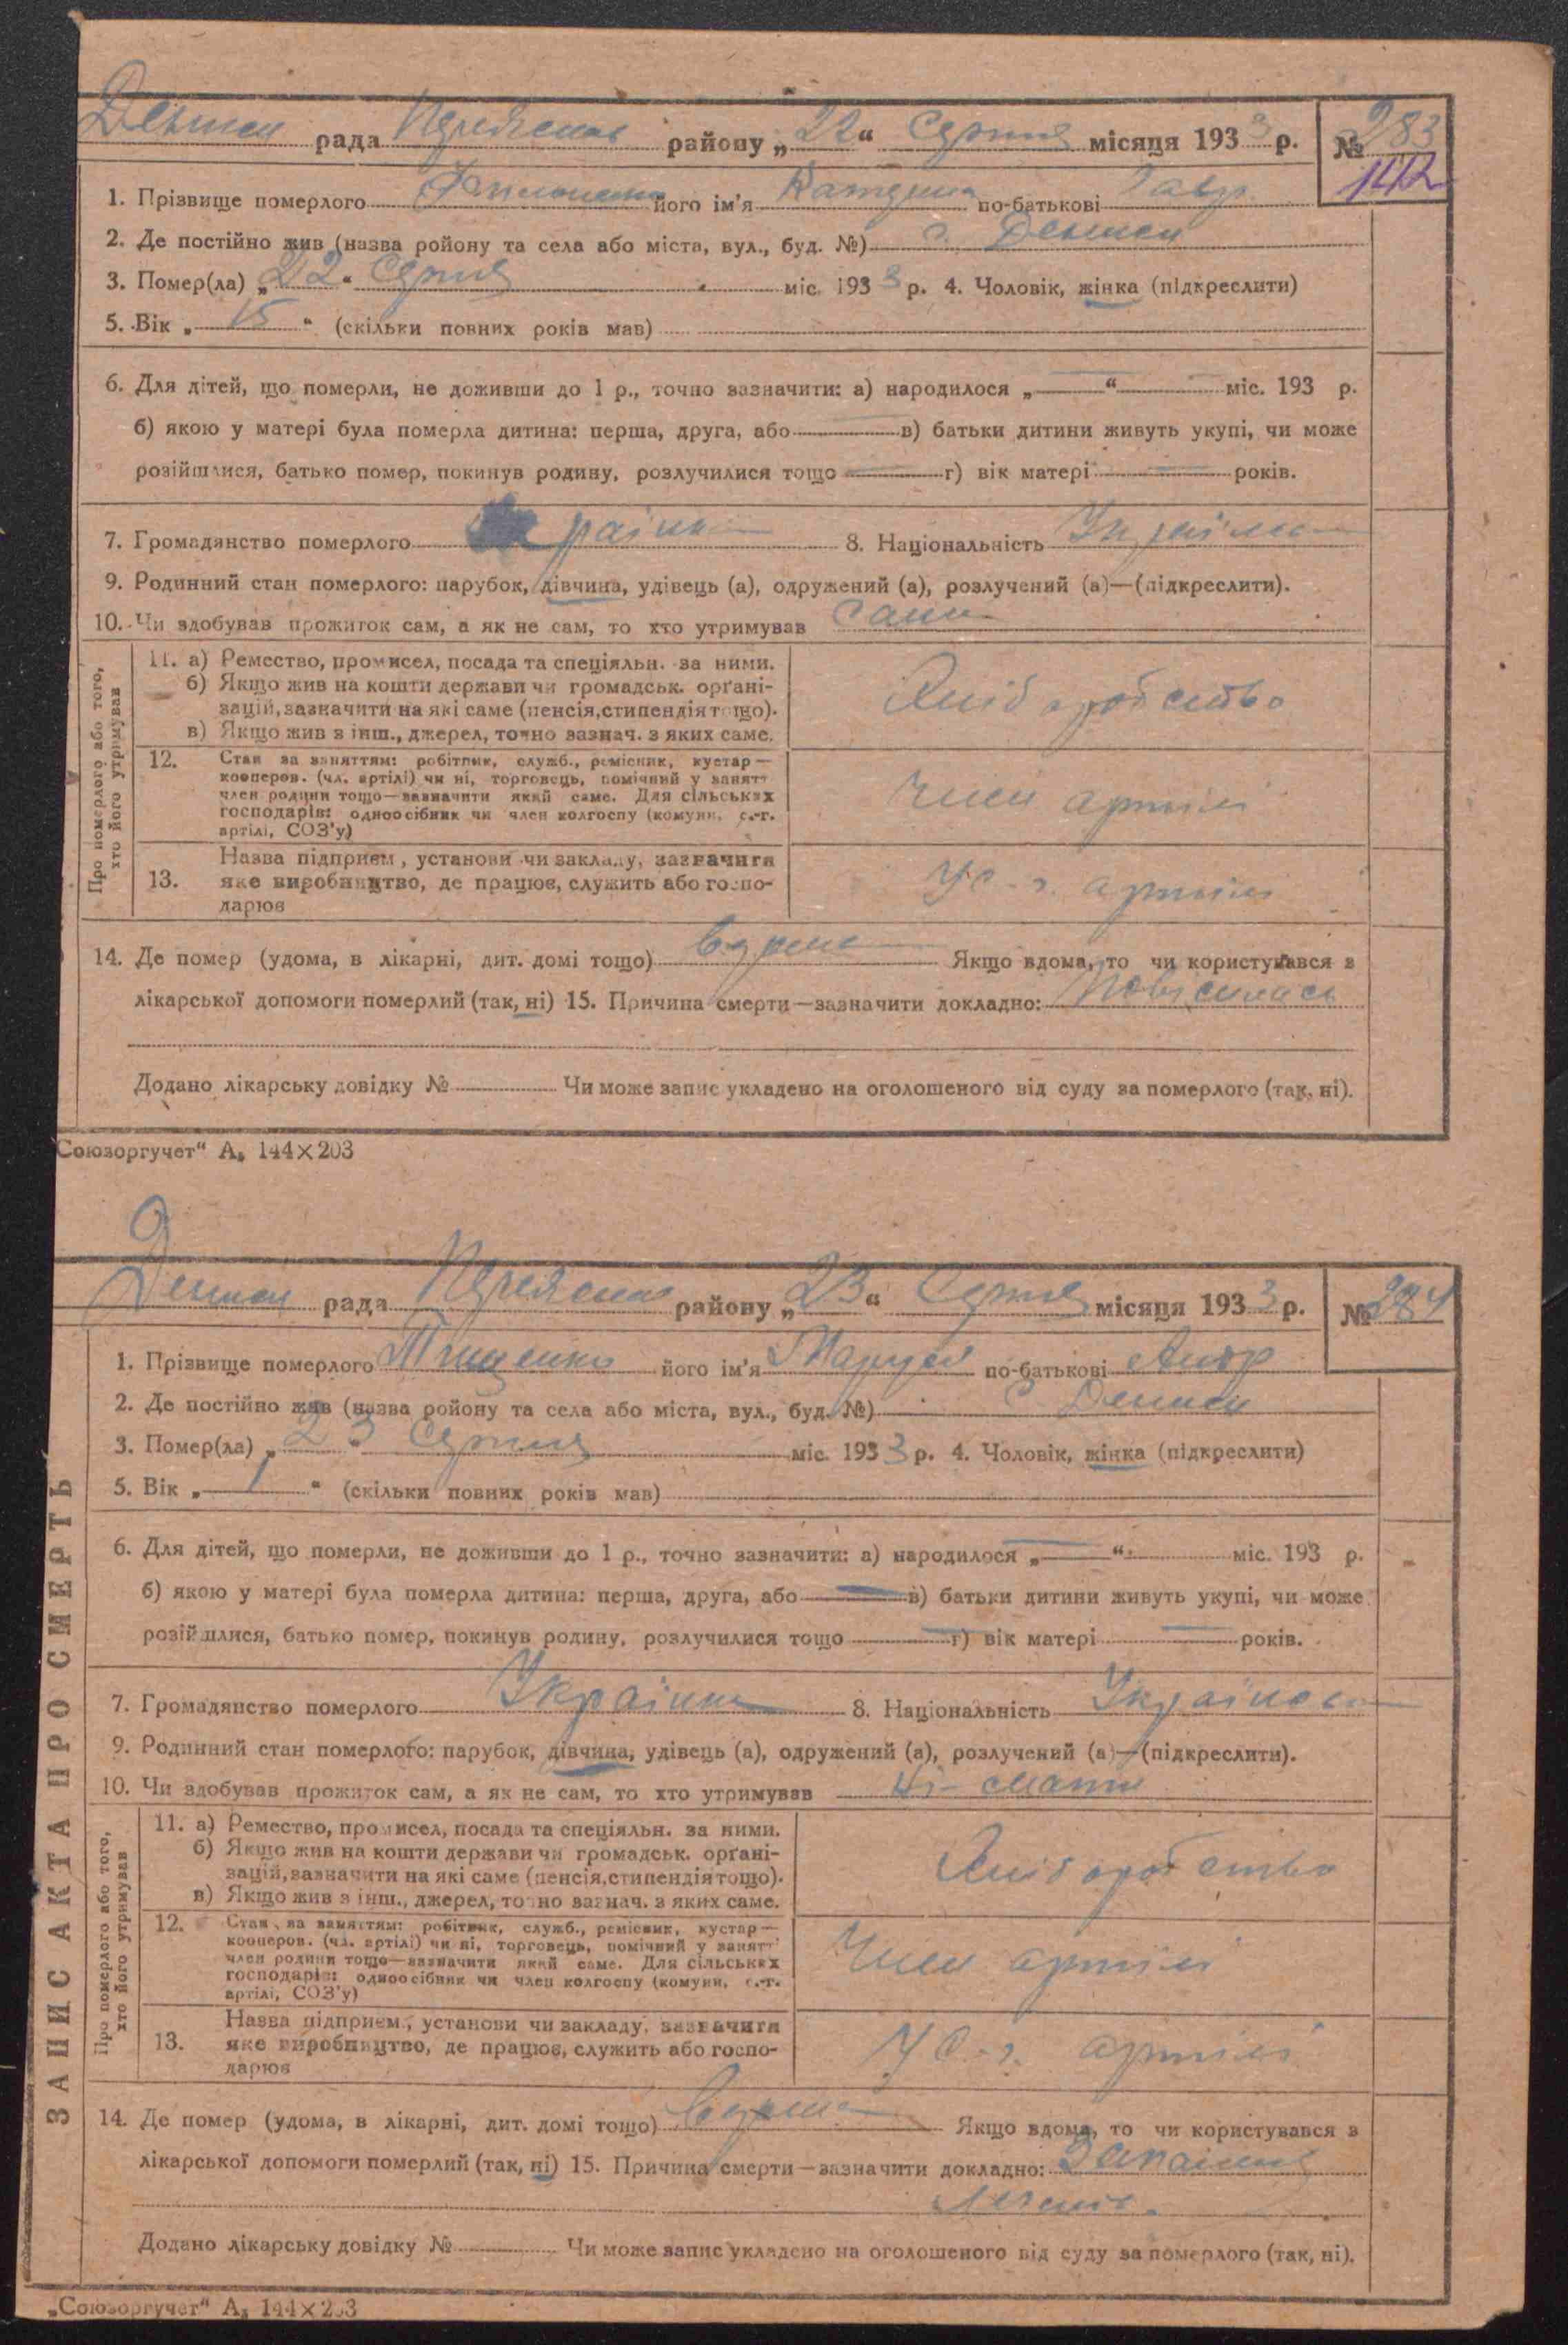 Дениси рада Переяслав району „22“ Серпня місяця 1933 р. № 283
142
1. Прізвище померлого його ім'я Катерина по-батькові Гавр.
2. Де постійно жив (назва ройону та села або міста, вул., буд. №) с. Дениси
3. Помер(ла) „22“ Серпня міс. 1933 р. 4. Чоловік, жінка (підкреслити)
5. Вік „15“ (скільки повних років мав)
6. Для дітей, що померли, не доживши до 1 р., точно зазначити: а) народилося „—“ міс. 193 р.
б) якою у матері була померла дитина: перша, друга, або — в) батьки дитини живуть укупі, чи може
розійшлися, батько помер, покинув родину, розлучилися тощо — г) вік матері — років.
7. Громадянство померлого Україн 8. Національність Україн
9. Родинний стан померлого: парубок, дівчина, удівець (а), одружений (а), розлучений (а)—(підкреслити).
10. Чи здобував прожиток сам, а як не сам, то хто утримував сама
Про померлого або того,
хто його утримував
11. а) Ремество, промисел, посада та спеціяльн. за ними.
б) Якщо жив на кошти держави чи громадськ. орґані-
зацій, зазначити на які саме (пенсія, стипендія тощо).
в) Якщо жив з інш., джерел, точно зазнач. з яких саме.
Хліборобство
12. Стан за заняттям: робітник, служб., ремісник, кустар—
кооперов. (чл. артілі) чи ні, торговець, помічний у занятт
член родини тощо—зазначити який саме. Для сільських
господарів: одноосібник чи член колгоспу (комуни, с.-г.
артілі, СОЗ'у)
Член артілі
13. Назва підприєм, установи чи закладу, зазначити
яке виробництво, де працює, служить або госпо-
дарює
У с.-г. артілі
14. Де помер (удома, в лікарні, дит. домі тощо) вдома Якщо вдома, то чи користувався з
лікарської допомоги померлий (так, ні) 15. Причина смерти—зазначити докладно: Повісилась
Додано лікарську довідку № Чи може запис укладено на оголошеного від суду за померлого (так, ні).
Союзоргучет“ А₅ 144×203
Дениси рада Переяслав району „23“ Серпня місяця 1933 р. № 284
1. Прізвище померлого Тищенко його ім'я Маруся по-батькові Андр
2. Де постійно жив (назва ройону та села або міста, вул., буд. №) с Дениси
3. Помер(ла) „23“ Серпня міс. 1933 р. 4. Чоловік, жінка (підкреслити)
5. Вік „1“ (скільки повних років мав)
6. Для дітей, що померли, не доживши до 1 р., точно зазначити: а) народилося „—“ міс. 193 р.
б) якою у матері була померла дитина: перша, друга, або — в) батьки дитини живуть укупі, чи може
розійшлися, батько помер, покинув родину, розлучилися тощо — г) вік матері — років.
7. Громадянство померлого Україн 8. Національність Україн
9. Родинний стан померлого: парубок, дівчина, удівець (а), одружений (а), розлучений (а)—(підкреслити).
10. Чи здобував прожиток сам, а як не сам, то хто утримував Ні- мати
ЗАПИС АКТА ПРО СМЕРТЬ
Про померлого або того,
хто його утримував
11. а) Ремество, промисел, посада та спеціяльн. за ними.
б) Якщо жив на кошти держави чи громадськ. орґані-
зацій, зазначити на які саме (пенсія, стипендія тощо).
в) Якщо жив з інш., джерел, точно зазнач. з яких саме.
Хліборобство
12. Стан за заняттям: робітник, служб., ремісник, кустар—
кооперов. (чл. артілі) чи ні, торговець, помічний у занятт
член родини тощо—зазначити який саме. Для сільських
господарів: одноосібник чи член колгоспу (комуни, с.-г.
артілі, СОЗ'у)
Член артілі
13. Назва підприєм., установи чи закладу, зазначити
яке виробництво, де працює, служить або госпо-
дарює
У с.-г. артілі
14. Де помер (удома, в лікарні, дит. домі тощо) вдома Якщо вдома, то чи користувався з
лікарської допомоги померлий (так, ні) 15. Причина смерти—зазначити докладно: Запаління
легенів.
Додано лікарську довідку № Чи може запис укладено на оголошеного від суду за померлого (так, ні).
„Союзоргучет“ А₅ 144×203